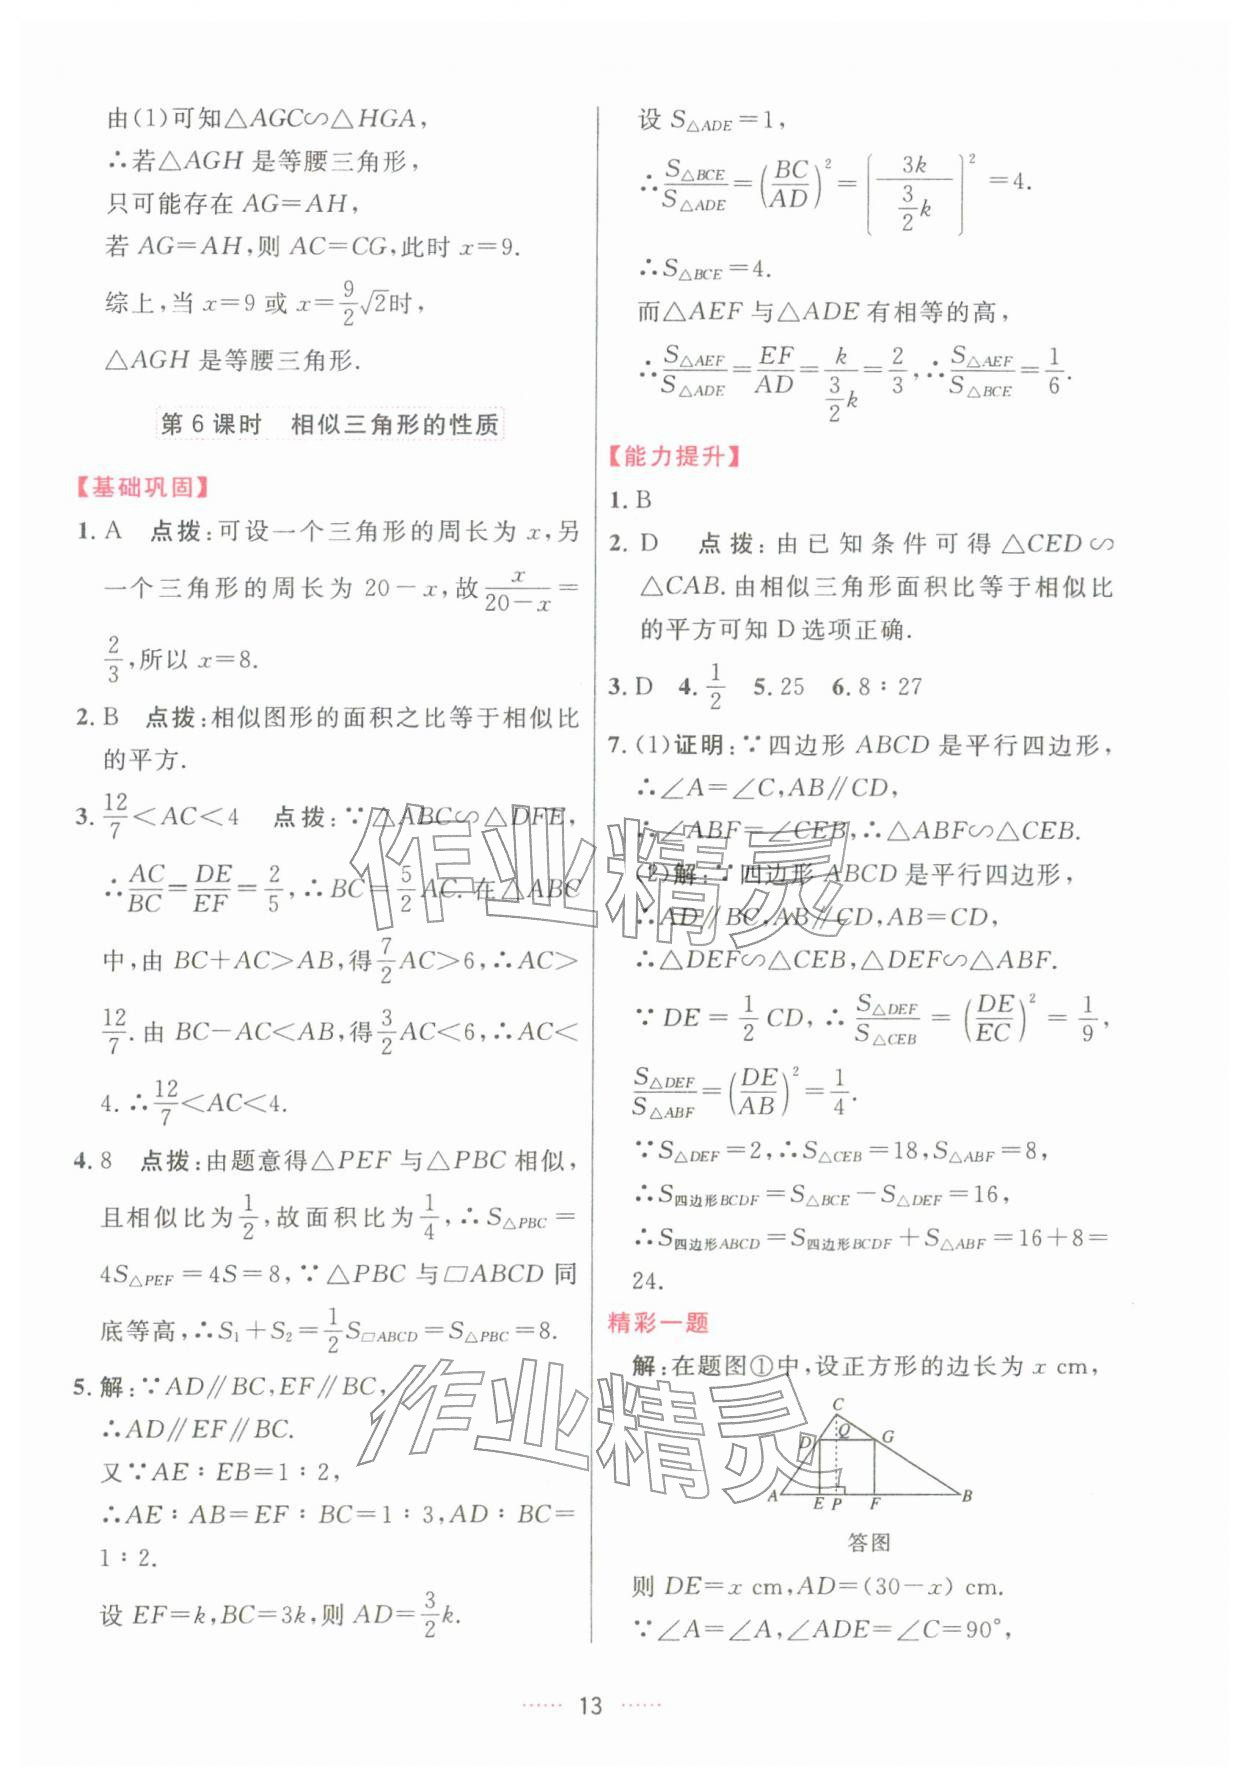 由(1)可知△AGC∽△HGA,
∴若△AGH 是等腰三角形,
只可能存在 AG=AH,
若 AG=AH,则 AC=CG,此时 x=9.
综上,当 x=9 或 x=9/2√2时,
△AGH 是等腰三角形.
第 6 课时 相似三角形的性质
【基础巩固】
1. A 点拨:可设一个三角形的周长为 x,另
一个三角形的周长为 20-x,故 x/(20-x)=
2/3,所以 x=8.
2. B 点拨:相似图形的面积之比等于相似比
的平方.
3. 12/7<AC<4 点拨:∵△ABC∽△DFE,
∴AC/BC=DE/EF=2/5,∴BC=5/2AC.在△ABC
中,由 BC+AC>AB,得7/2AC>6,∴AC>
12/7.由 BC-AC<AB,得3/2AC<6,∴AC<
4.∴12/7<AC<4.
4. 8 点拨:由题意得△PEF 与△PBC 相似,
且相似比为1/2,故面积比为1/4,∴S△PBC=
4S△PEF=4S=8,∵△PBC 与□ABCD 同
底等高,∴S1+S2=1/2S□ABCD=S△PBC=8.
5. 解:∵AD∥BC,EF∥BC,
∴AD∥EF∥BC.
又∵AE∶EB=1∶2,
∴AE∶AB=EF∶BC=1∶3,AD∶BC=
1∶2.
设 EF=k,BC=3k,则 AD=3/2k.
设 S△ADE=1,
∴S△BCE/S△ADE=(BC/AD)²=[3k/(3/2k)]²=4.
∴S△BCE=4.
而△AEF 与△ADE 有相等的高,
∴S△AEF/S△ADE=EF/AD=k/(3/2k)=2/3,∴S△AEF/S△BCE=1/6.
【能力提升】
1. B
2. D 点拨:由已知条件可得△CED∽
△CAB.由相似三角形面积比等于相似比
的平方可知 D 选项正确.
3. D 4. 1/2 5. 25 6. 8∶27
7. (1)证明:∵四边形 ABCD 是平行四边形,
∴∠A=∠C,AB∥CD,
∴∠ABF=∠CEB,∴△ABF∽△CEB.
(2)解:∵四边形 ABCD 是平行四边形,
∴AD∥BC,AB∥CD,AB=CD,
∴△DEF∽△CEB,△DEF∽△ABF.
∵DE=1/2CD,∴S△DEF/S△CEB=(DE/EC)²=1/9,
S△DEF/S△ABF=(DE/AB)²=1/4.
∵S△DEF=2,∴S△CEB=18,S△ABF=8,
∴S四边形BCDF=S△BCE-S△DEF=16,
∴S四边形ABCD=S四边形BCDF+S△ABF=16+8=
24.
精彩一题
解:在题图①中,设正方形的边长为 x cm,
C
D Q G
A E P F B
答图
则 DE=x cm,AD=(30-x) cm.
∵∠A=∠A,∠ADE=∠C=90°,
13
作业精灵
作业精灵